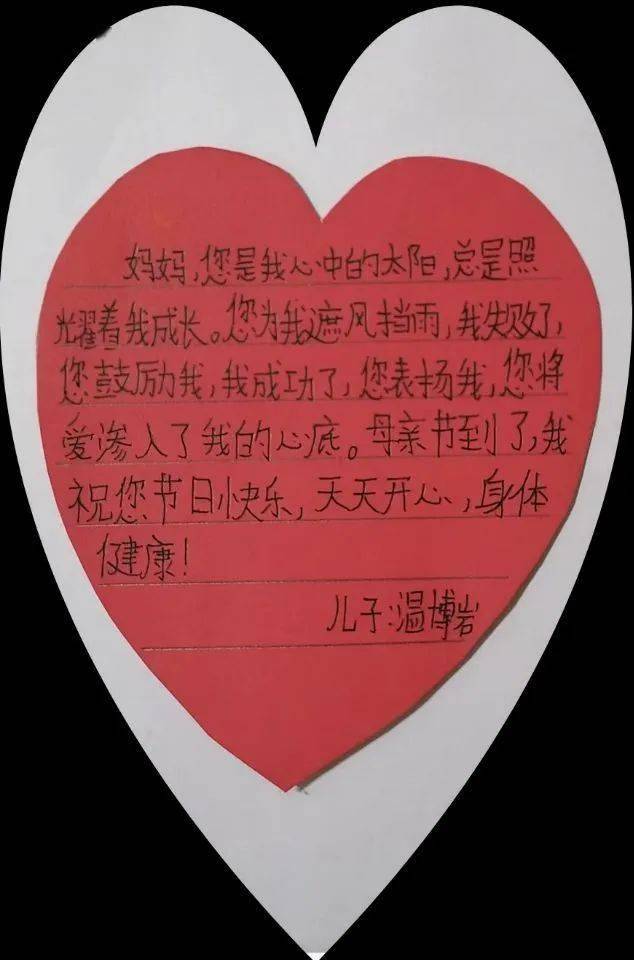 妈妈，您是我心中的太阳，总是照
耀着我成长。您为我遮风挡雨，我失败了，
您鼓励我，我成功了，您表扬我，您将
爱渗入了我的心底。母亲节到了，我
祝您节日快乐，天天开心，身体
健康！
儿子：温博岩